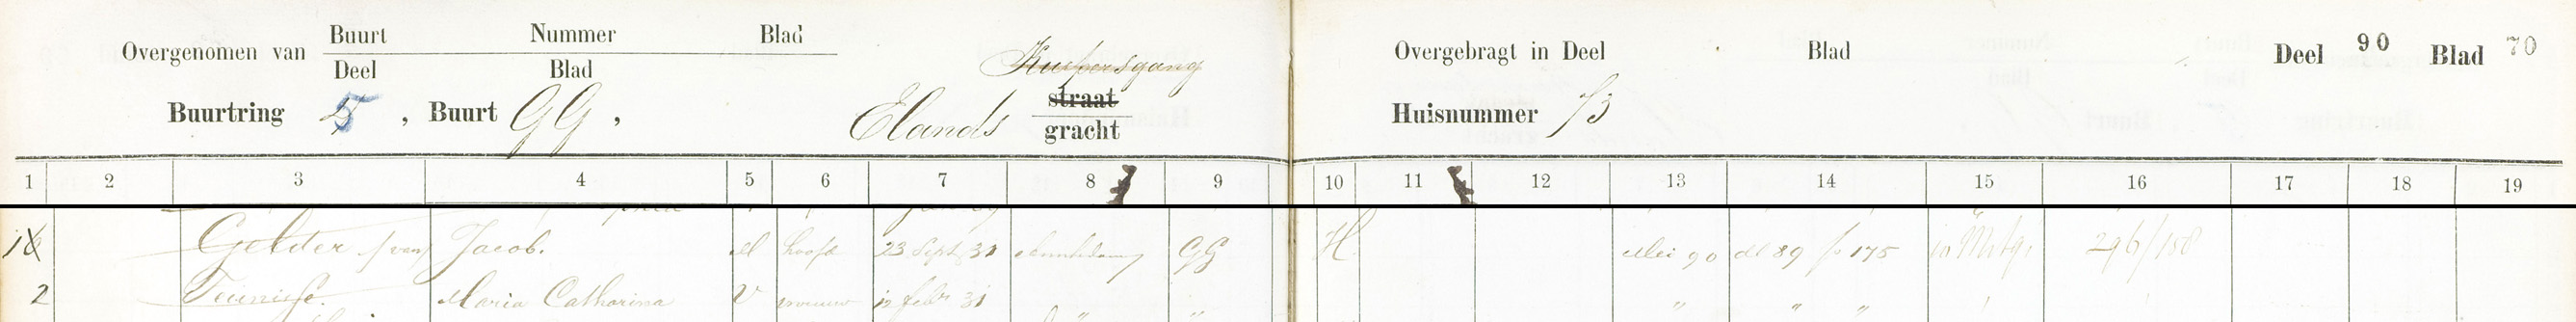 Overgenomen van Buurt Nummer Blad
Deel Blad
gang
Buurtring 5, Buurt GG, Elands straat
gracht
Overgebragt in Deel Blad Deel 90 Blad 70
Huisnummer 73
1 2 3 4 5 6 7 8 9 10 11 12 13 14 15 16 17 18 19
Gelder (van) Jacob. M hoofd 23 Sept 31 GG H Mei 90 dl 89 fo 175 296/158
2 Teunisse. Maria Catharina V vrouw 12 febr 31 " " " "